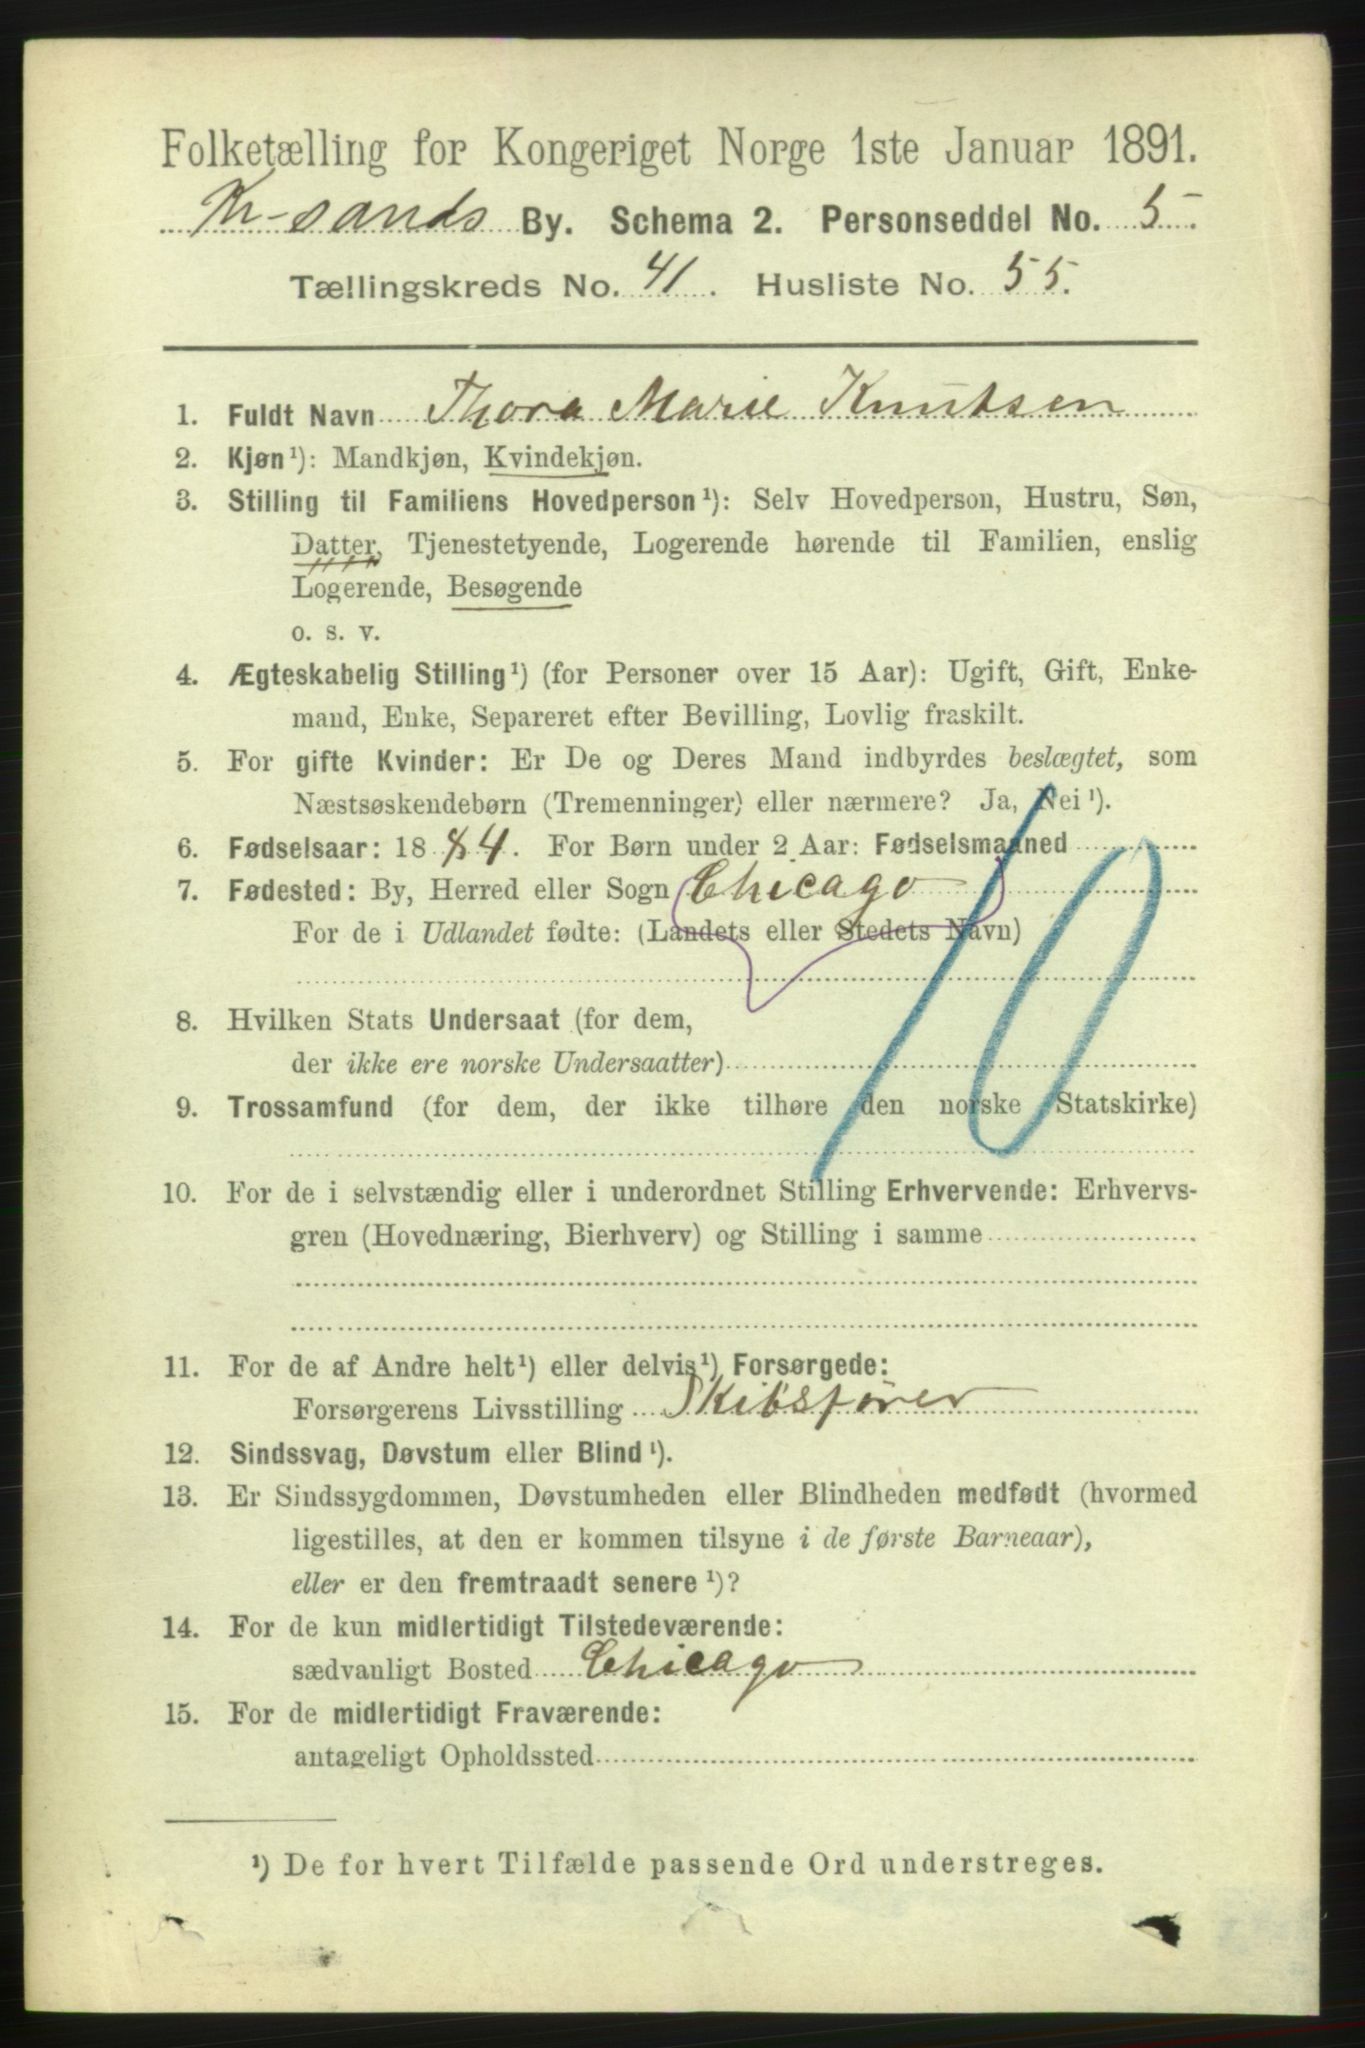 Folketælling for Kongeriget Norge 1ste Januar 1891.
Kr-sands By. Schema 2. Personseddel No. 5.
Tællingskreds No. 41. Husliste No. 55.
1. Fuldt Navn Thora Marie Knutsen
2. Kjøn¹): Mandkjøn, Kvindekjøn.
3. Stilling til Familiens Hovedperson¹): Selv Hovedperson, Hustru, Søn,
Datter, Tjenestetyende, Logerende hørende til Familien, enslig
Logerende, Besøgende
o. s. v.
4. Ægteskabelig Stilling¹) (for Personer over 15 Aar): Ugift, Gift, Enke-
mand, Enke, Separeret efter Bevilling, Lovlig fraskilt.
5. For gifte Kvinder: Er De og Deres Mand indbyrdes beslægtet, som
Næstsøskendebørn (Tremenninger) eller nærmere? Ja, Nei¹).
6. Fødselsaar: 1884. For Børn under 2 Aar: Fødselsmaaned
7. Fødested: By, Herred eller Sogn Chicago
For de i Udlandet fødte: (Landets eller Stedets Navn)
10
8. Hvilken Stats Undersaat (for dem,
der ikke ere norske Undersaatter)
9. Trossamfund (for dem, der ikke tilhøre den norske Statskirke)
10. For de i selvstændig eller i underordnet Stilling Erhvervende: Erhvervs-
gren (Hovednæring, Bierhverv) og Stilling i samme
11. For de af Andre helt¹) eller delvis¹) Forsørgede:
Forsørgerens Livsstilling Skibsfører
12. Sindssvag, Døvstum eller Blind¹).
13. Er Sindssygdommen, Døvstumheden eller Blindheden medfødt (hvormed
ligestilles, at den er kommen tilsyne i de første Barneaar),
eller er den fremtraadt senere¹)?
14. For de kun midlertidigt Tilstedeværende:
sædvanligt Bosted Chicago
15. For de midlertidigt Fraværende:
antageligt Opholdssted
¹) De for hvert Tilfælde passende Ord understreges.